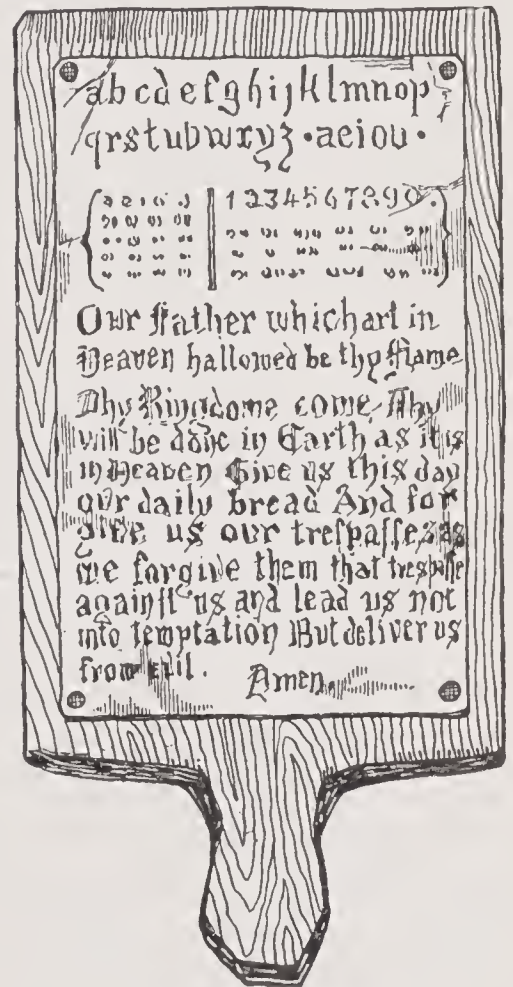 abcdefghijklmnop
qrstuvwxyz·aeiou·
a e i o u
1234567890.
Our ffather which art in
Heaven hallowed be thy Name
Thy Kingdome come, Thy
will be done in Earth as it is
in Heaven Give us this day
our daily bread And for
give us our treſpaſſes as
we forgive them that treſpaſſe
againſt us and lead us not
into temptation But deliver us
from evil.
Amen.